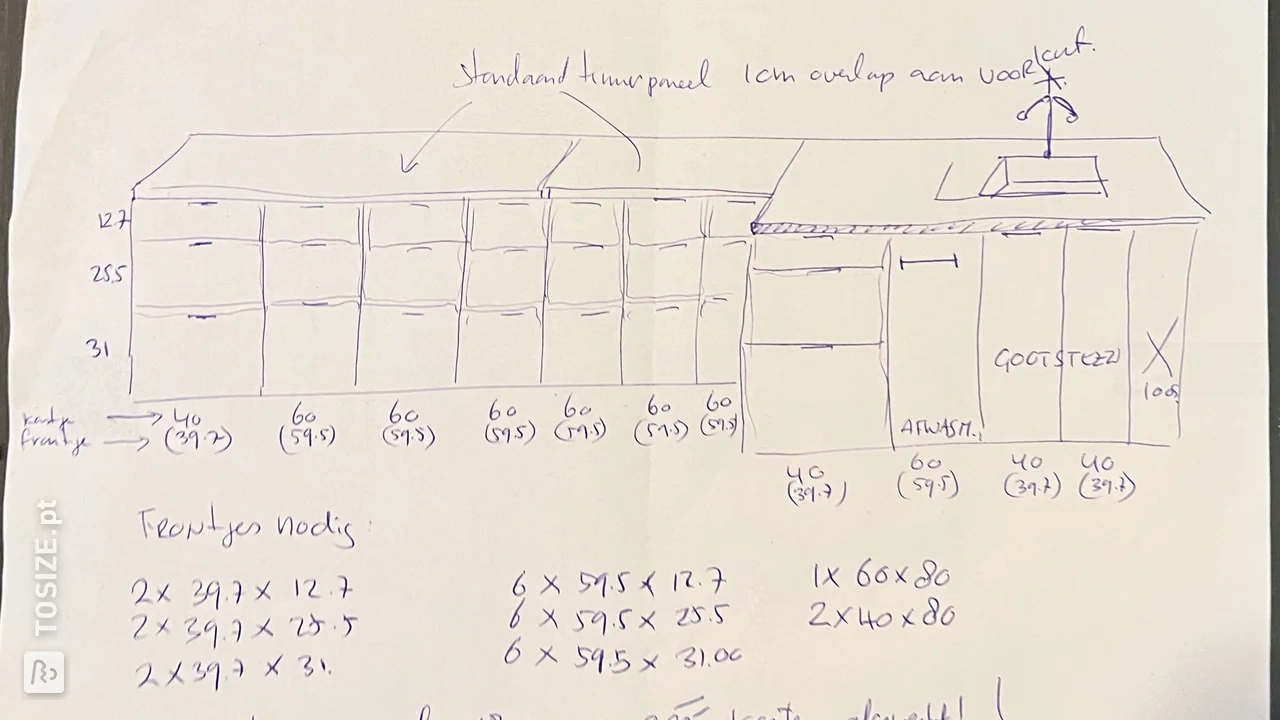 Standaard timmerpaneel 1cm overlap aan voorkant.
12.7
25.5
31
GOOTSTEEN
X
100%
AFWASM.
kastje → 40 60 60 60 60 60 60
frontje → (39.7) (59.5) (59.5) (59.5) (59.5) (59.5) (59.5)
40 60 40 40
(39.7) (59.5) (39.7) (39.7)
Frontjes nodig:
2 x 39.7 x 12.7
2 x 39.7 x 25.5
2 x 39.7 x 31.
6 x 59.5 x 12.7
6 x 59.5 x 25.5
6 x 59.5 x 31.00
1x 60x80
2x40x80
TOSIZE.pt